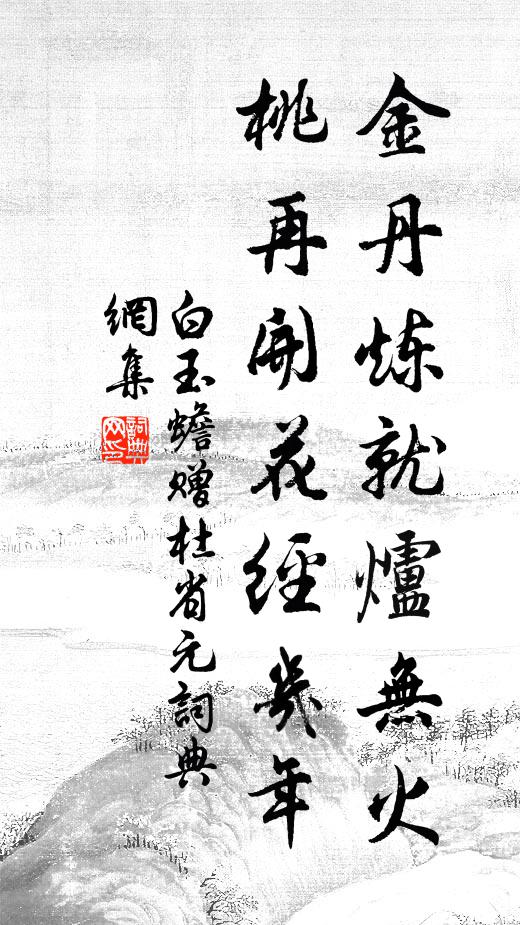 金丹炼就爐無火
桃再開花經幾年
白玉蟾贈杜省元詞典
網集
詞典網印